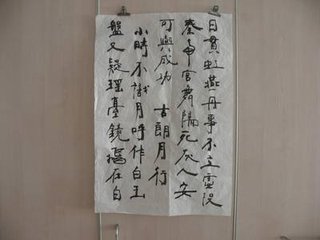 日貫虹燕丹事不立虛沒
秦帝宮舞陽死灰人安
可與成功 古朗月行
小時不識月呼作白玉
盤又疑瑤臺鏡掛在白